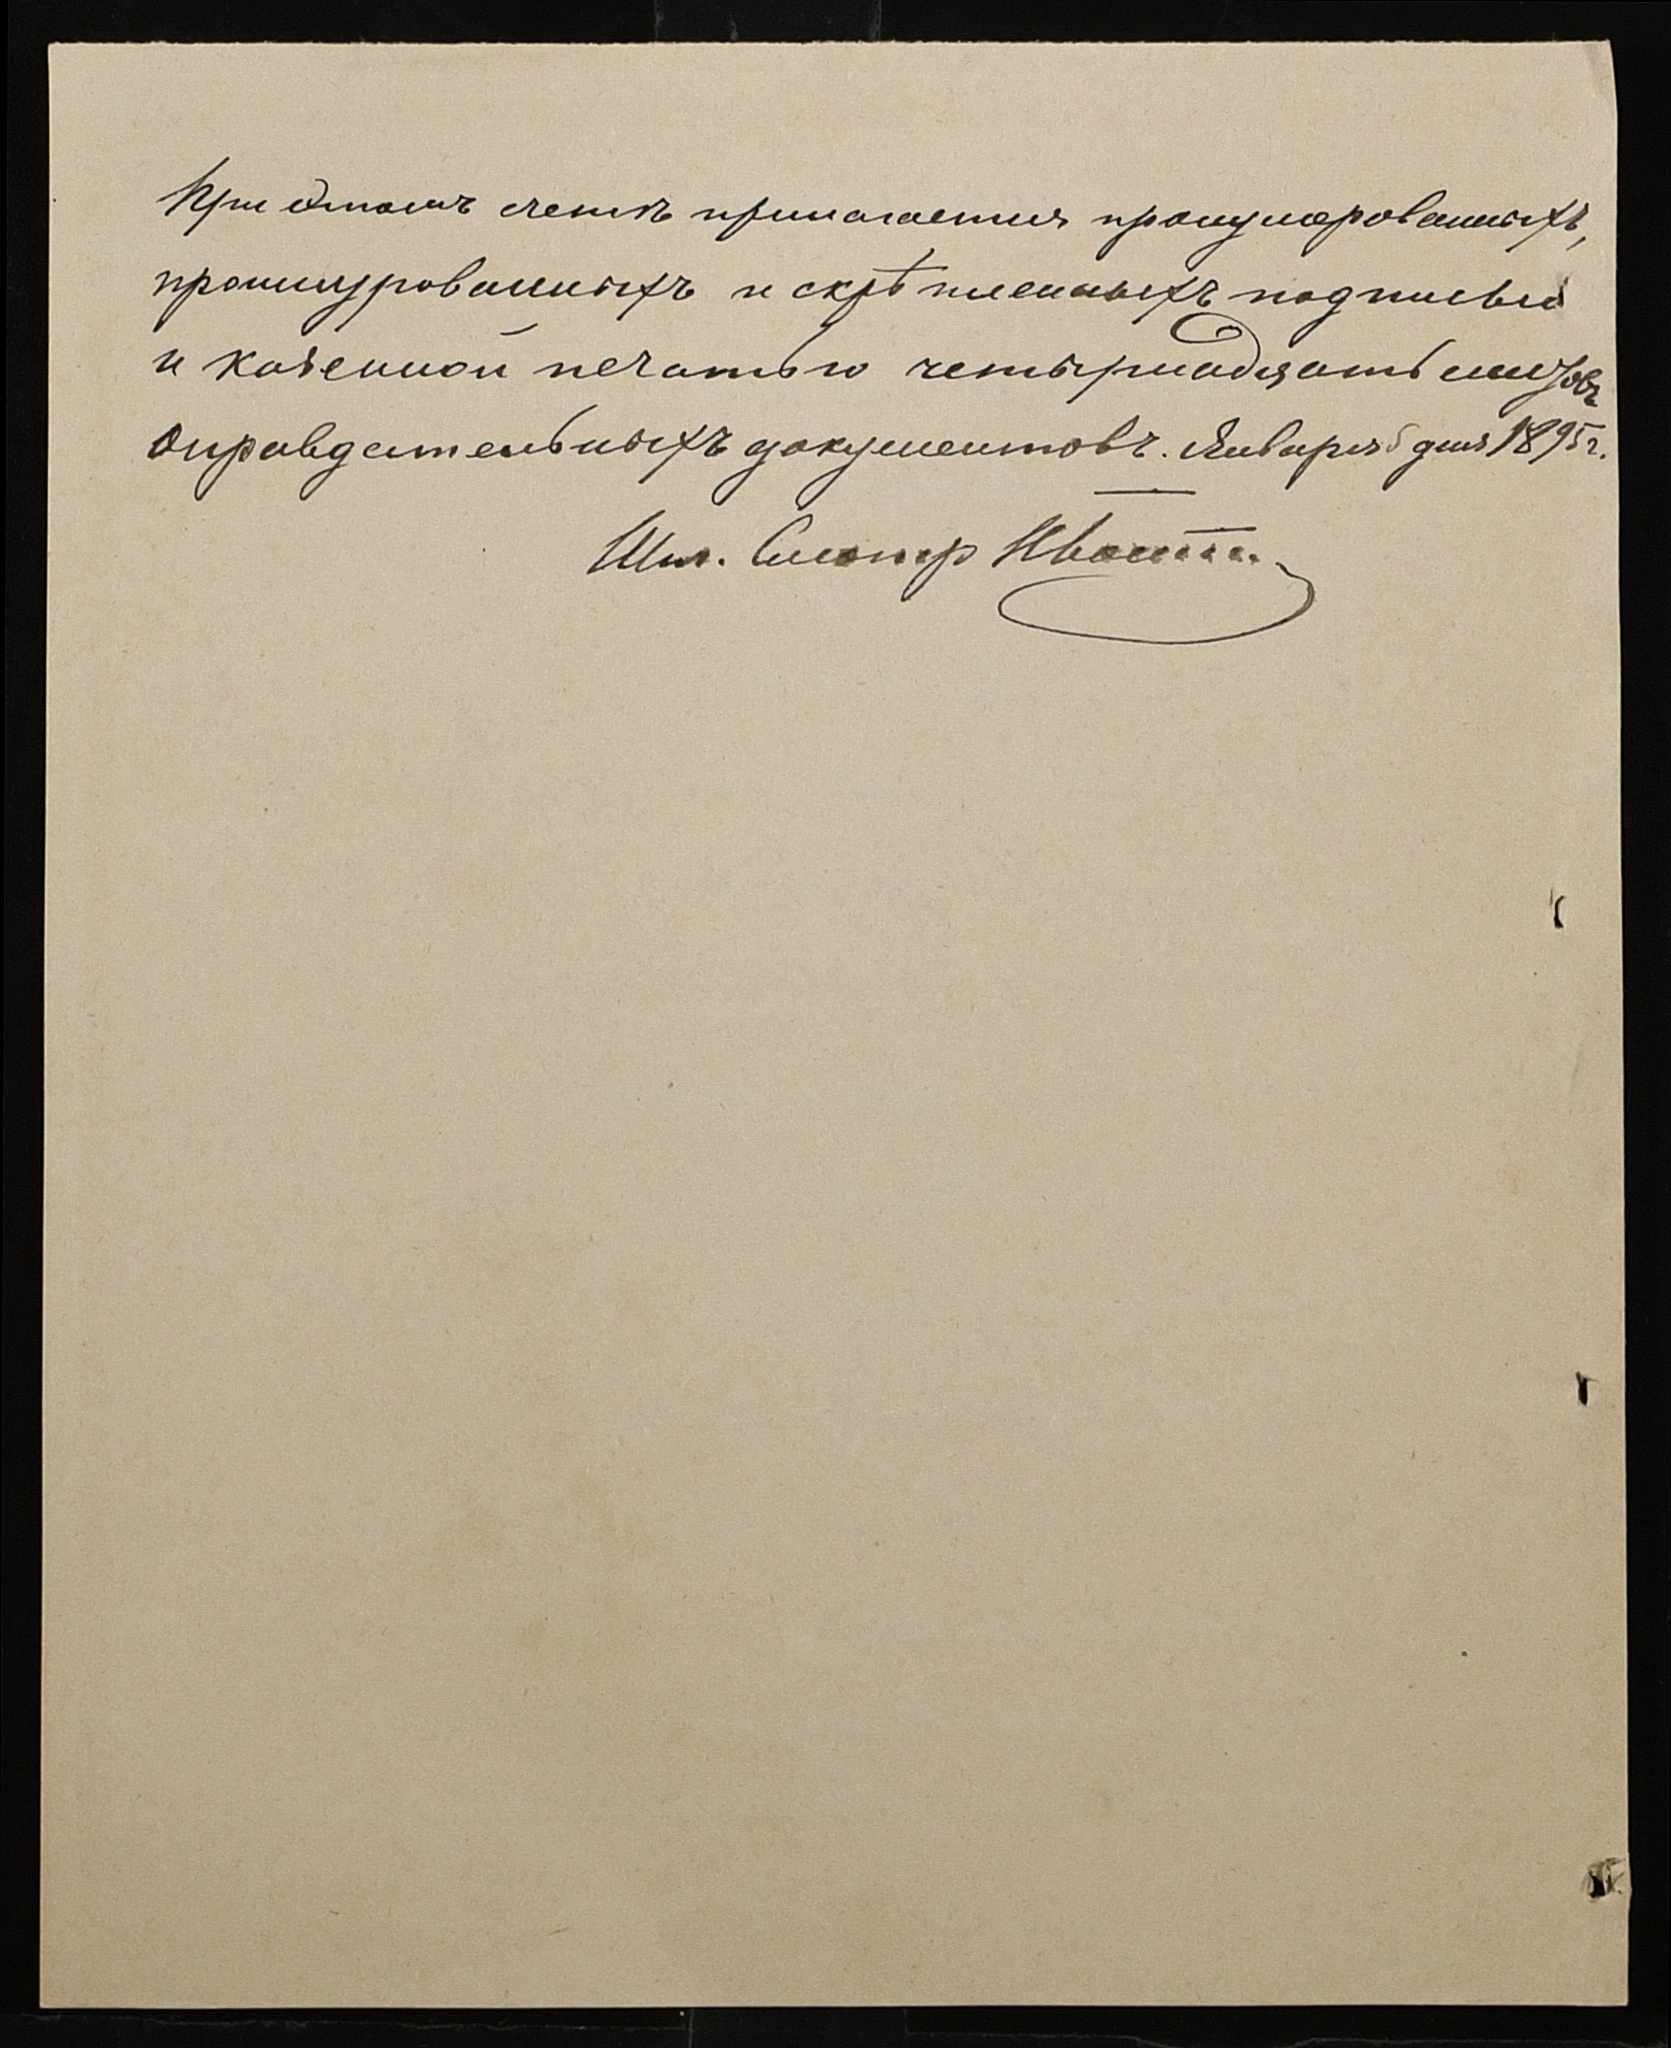 При этомъ счетѣ прилагается пронумерованныхъ,
прошнурованныхъ и скрѣпленныхъ подписью
и казенной печатью четырнадцать листовъ
оправдательныхъ документовъ. Января 5 дня 1895 г.
Шт. Смотр